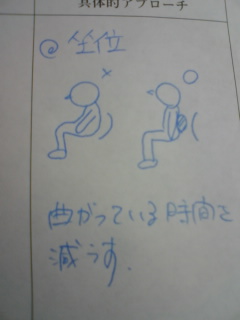 具体的アプローチ
@ 坐位
× ○
曲がっている時間を
減らす.